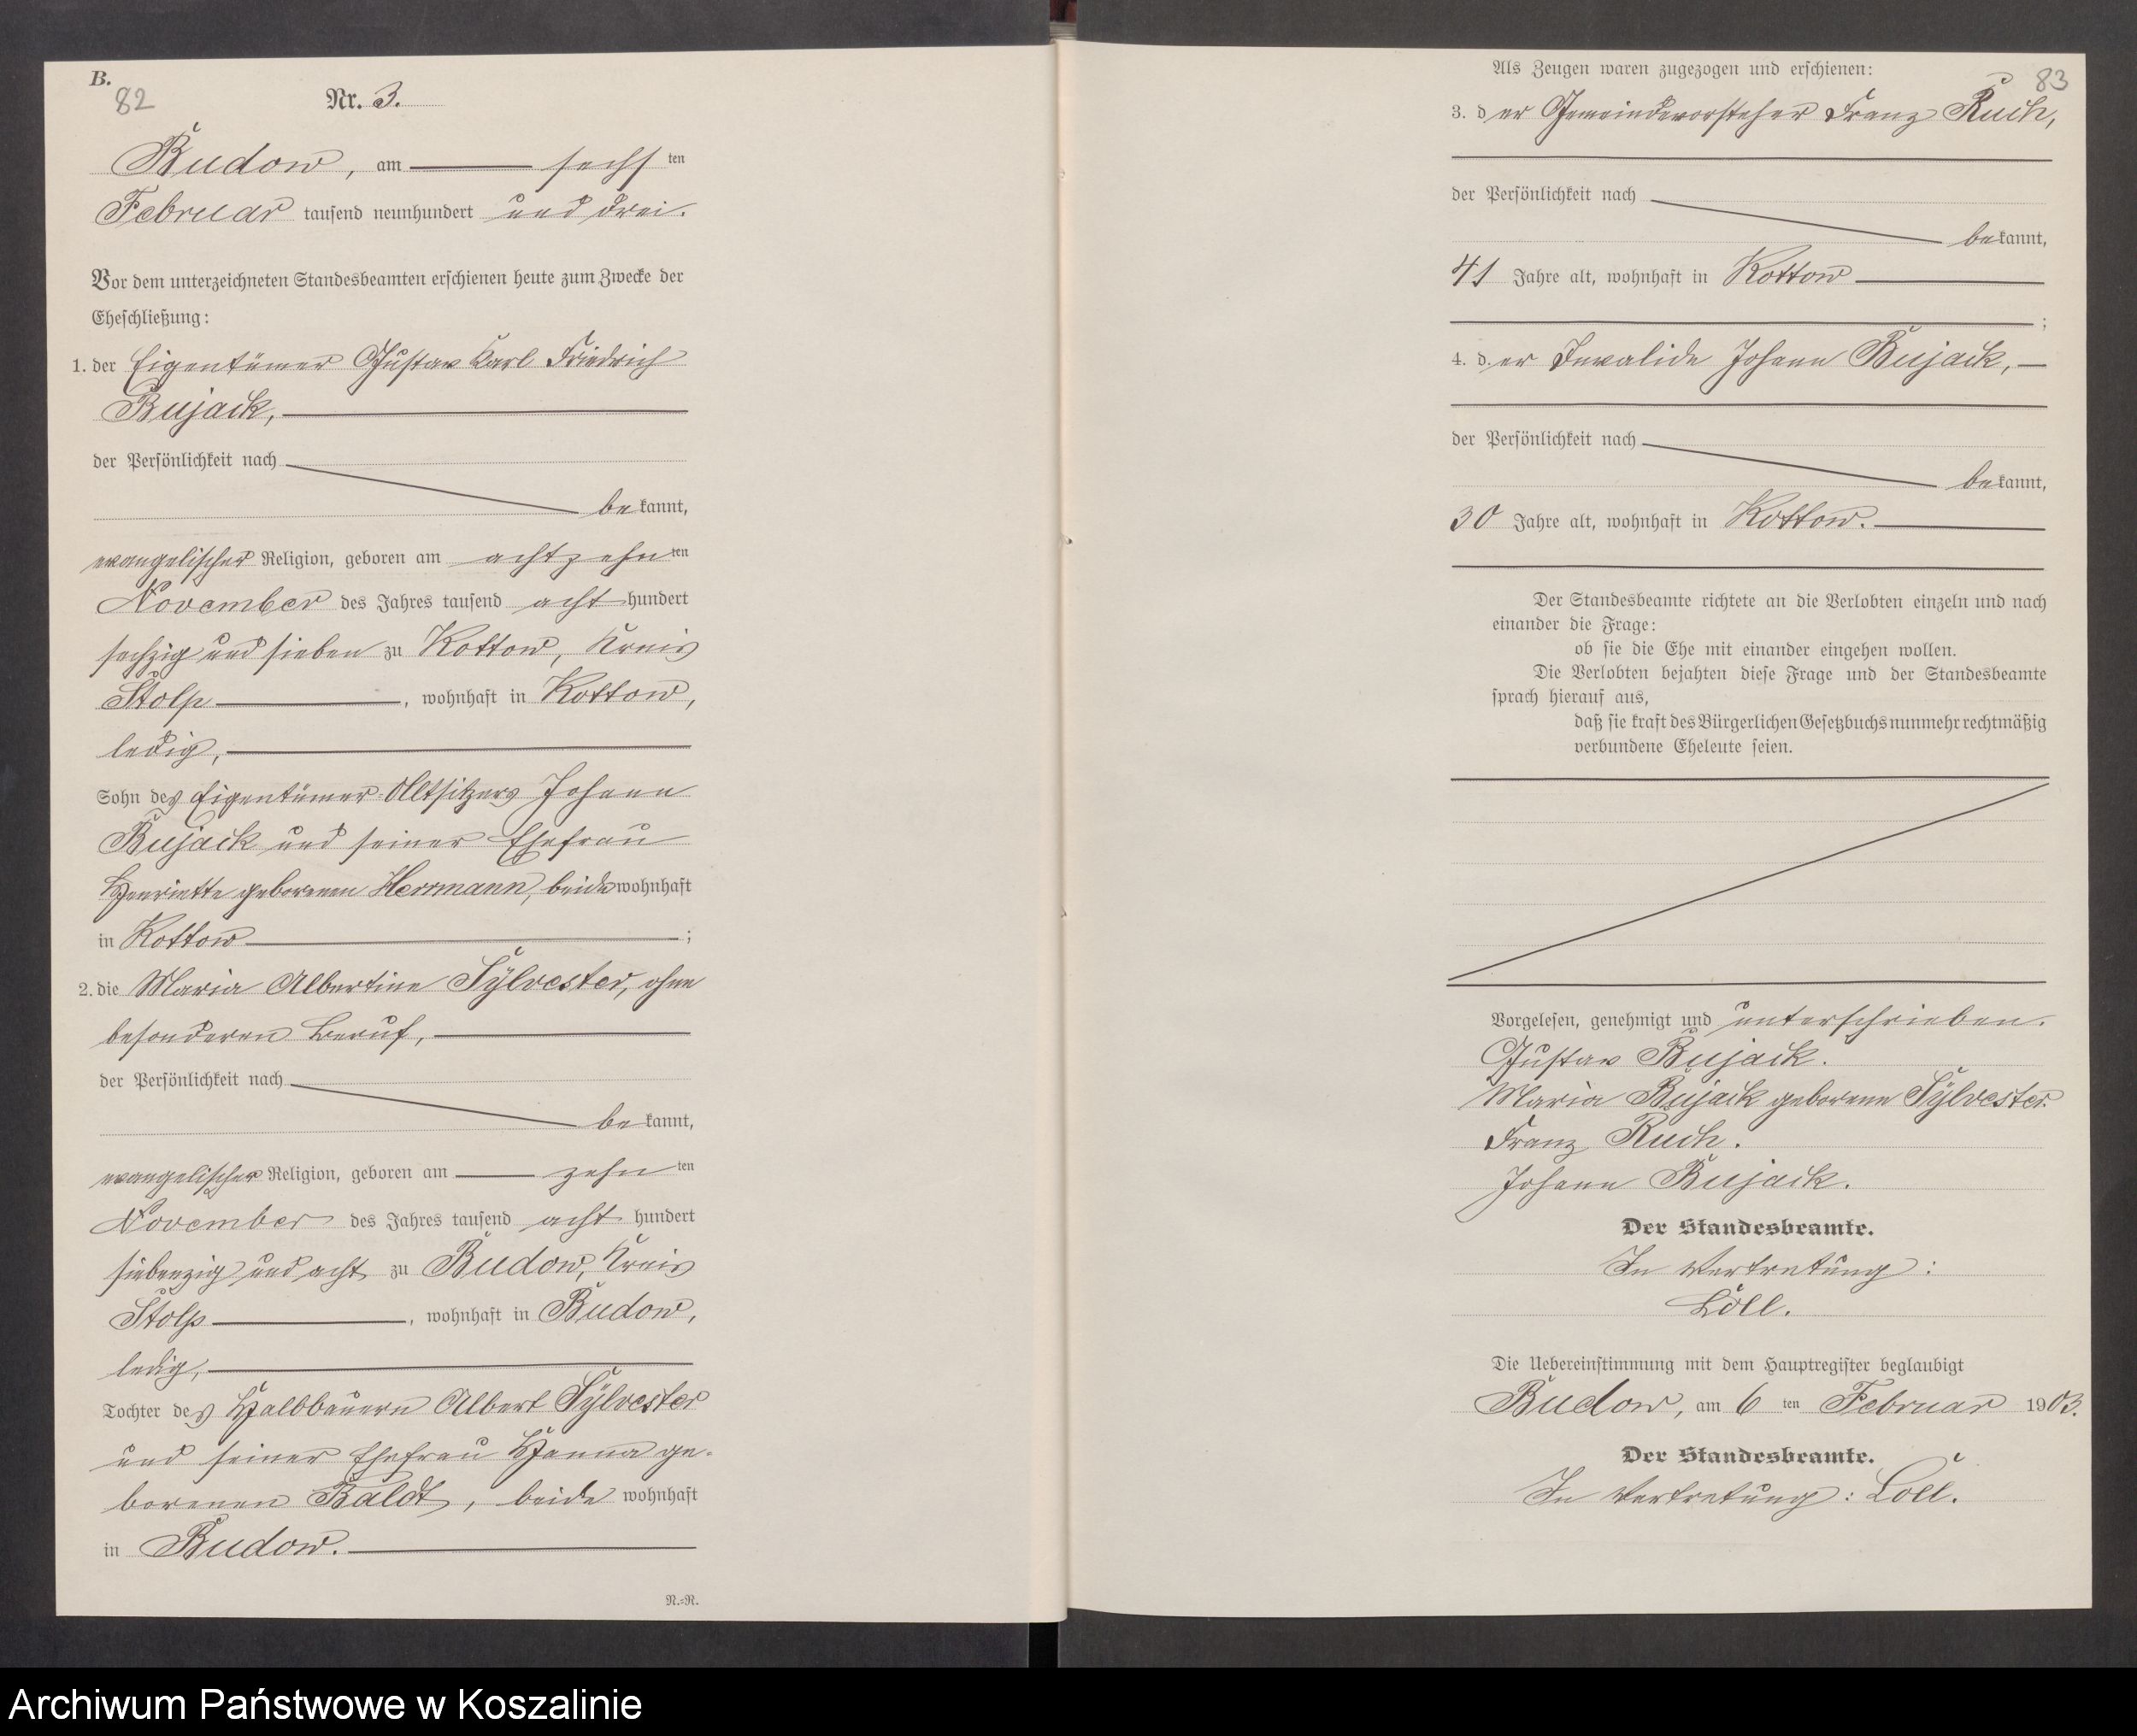 B.
82
Nr. 3.
Budow, am sechsten
Februar tausend neunhundert und drei.
Vor dem unterzeichneten Standesbeamten erschienen heute zum Zwecke der
Eheschließung:
1. der Eigentümer Gustav Karl Friedrich
Bujack,
der Persönlichkeit nach
bekannt,
evangelischer Religion, geboren am achtzehnten
November des Jahres tausend acht hundert
sechzig und sieben zu Kottow, Kreis
Stolp, wohnhaft in Kottow,
ledig,
Sohn des Eigentümer-Altsitzers Johann
Bujack und seiner Ehefrau
Henriette geborenen Herrmann, beide wohnhaft
in Kottow;
2. die Maria Albertine Sÿlvester, ohne
besonderen Beruf,
der Persönlichkeit nach
bekannt,
evangelischer Religion, geboren am zehnten
November des Jahres tausend acht hundert
siebenzig und acht zu Budow, Kreis
Stolp, wohnhaft in Budow,
ledig,
Tochter des Halbbauern Albert Sÿlvester
und seiner Ehefrau Hanna ge-
borenen Baldt, beide wohnhaft
in Budow.
N.-R.
83
Als Zeugen waren zugezogen und erschienen:
3. der Gemeindevorsteher Franz Ruch,
der Persönlichkeit nach
bekannt,
41 Jahre alt, wohnhaft in Kottow
;
4. der Invalide Johann Bujack,
der Persönlichkeit nach
bekannt,
30 Jahre alt, wohnhaft in Kottow.
Der Standesbeamte richtete an die Verlobten einzeln und nach
einander die Frage:
ob sie die Ehe mit einander eingehen wollen.
Die Verlobten bejahten diese Frage und der Standesbeamte
sprach hierauf aus,
daß sie kraft des Bürgerlichen Gesetzbuchs nunmehr rechtmäßig
verbundene Eheleute seien.
Vorgelesen, genehmigt und unterschrieben.
Gustav Bujack.
Maria Bujack geborene Sÿlvester.
Franz Ruch.
Johann Bujack.
Der Standesbeamte.
In Vertretung:
Löll.
Die Uebereinstimmung mit dem Hauptregister beglaubigt
Budow, am 6ten Februar 1903.
Der Standesbeamte.
In Vertretung: Löll.
Archiwum Państwowe w Koszalinie